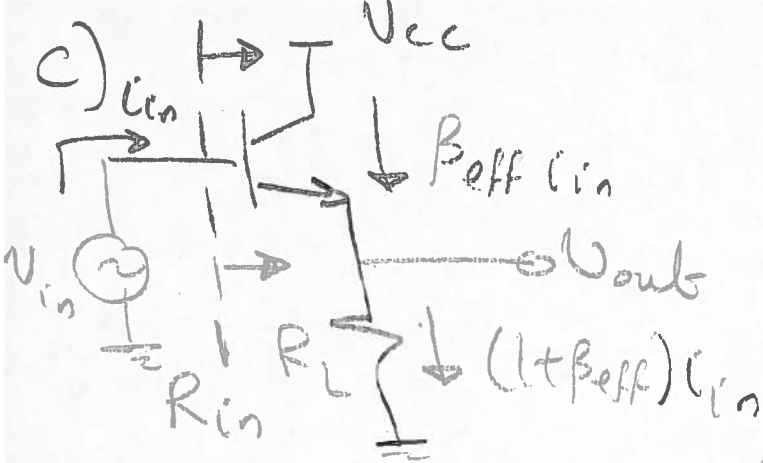 c)
Vcc
iin
βeff iin
vin
vout
RL
(1+βeff)iin
Rin